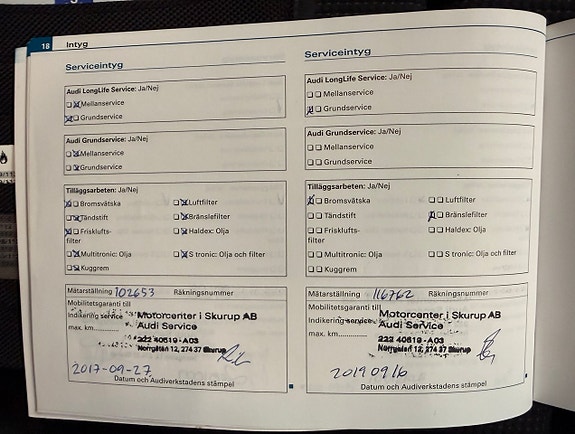 18 Intyg
Serviceintyg
Audi LongLife Service: Ja/Nej
Mellanservice
Grundservice
Audi Grundservice: Ja/Nej
Mellanservice
Grundservice
Tilläggsarbeten: Ja/Nej
Bromsvätska Luftfilter
Tändstift Bränslefilter
Frisklufts- Haldex: Olja
filter
Multitronic: Olja S tronic: Olja och filter
Kuggrem
Mätarställning 102653 Räkningsnummer
Mobilitetsgaranti till
Indikering service Motorcenter i Skurup AB
max. km Audi Service
222 40519 - A03
Norrgatan 12, 274 37 Skurup
2017-09-27
Datum och Audiverkstadens stämpel
Serviceintyg
Audi LongLife Service: Ja/Nej
Mellanservice
Grundservice
Audi Grundservice: Ja/Nej
Mellanservice
Grundservice
Tilläggsarbeten: Ja/Nej
Bromsvätska Luftfilter
Tändstift Bränslefilter
Frisklufts- Haldex: Olja
filter
Multitronic: Olja S tronic: Olja och filter
Kuggrem
Mätarställning 116762 Räkningsnummer
Mobilitetsgaranti till
Indikering service Motorcenter i Skurup AB
max. km Audi Service
222 40519 - A03
Norrgatan 12, 274 37 Skurup
2019 09 16
Datum och Audiverkstadens stämpel